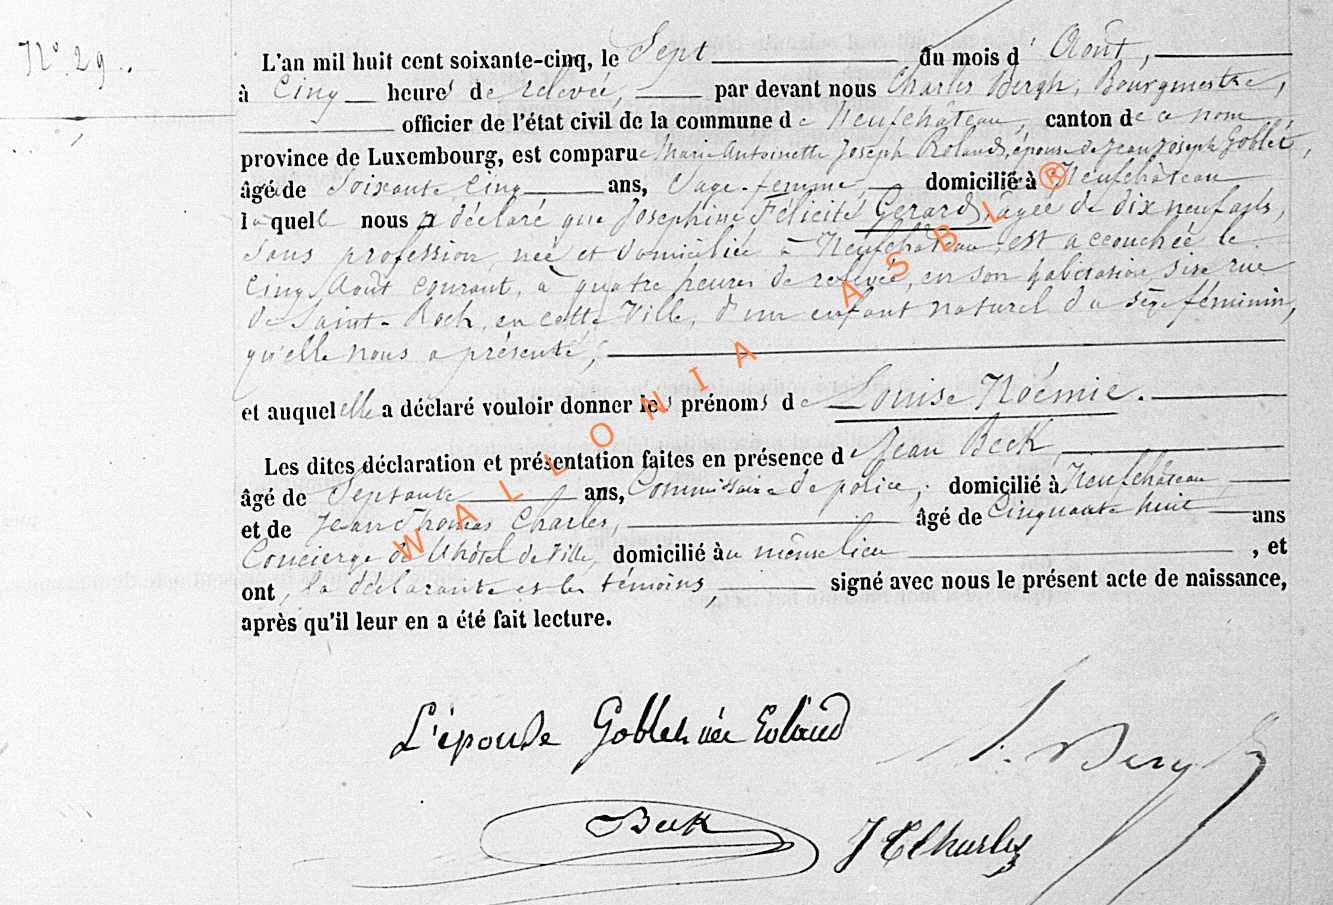 N° 29.
L'an mil huit cent soixante-cinq, le Sept du mois d' Août,
à Cinq heures de relevée, par devant nous Charles Bergh, Bourgmestre,
officier de l'état civil de la commune de Neufchâteau, canton de ce nom,
province de Luxembourg, est comparue Marie Antoinette Joseph Roland, épouse de Jean Joseph Goblet,
âgée de Soixante Cinq ans, Sage-femme, domiciliée à Neufchâteau
laquelle nous a déclaré que Joséphine Félicité Gerard, âgée de dix neuf ans,
sans profession, née et domiciliée à Neufchâteau est accouchée le
Cinq Août courant, à quatre heures de relevée, en son habitation sise rue
de Saint-Roch, en cette Ville, d'un enfant naturel du sexe féminin,
qu'elle nous a présenté,
et auquel elle a déclaré vouloir donner les prénoms de Louise Noémie.
Les dites déclaration et présentation faites en présence de Jean Beck,
âgé de Septante ans, Commissaire de police, domicilié à Neufchâteau
et de Jean Thomas Charles, âgé de Cinquante huit ans
Concierge de l'hôtel de Ville, domicilié au même lieu, et
ont, la déclarante et les témoins, signé avec nous le présent acte de naissance,
après qu'il leur en a été fait lecture.
L'épouse Goblet née Roland
Beck
J T Charles
WALLONIA ASBL ®